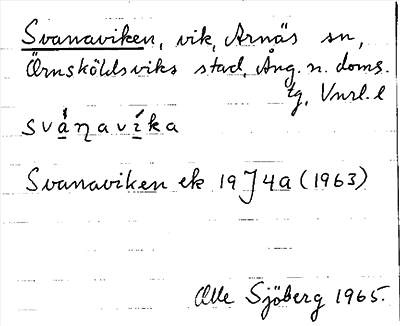 Svanaviken, vik, Arnäs sn,
Örnsköldsviks stad, Ång. n. doms.
tg, Vnrl. l
svánavíka
Svanaviken ek 19J4a (1963)
Olle Sjöberg 1965.